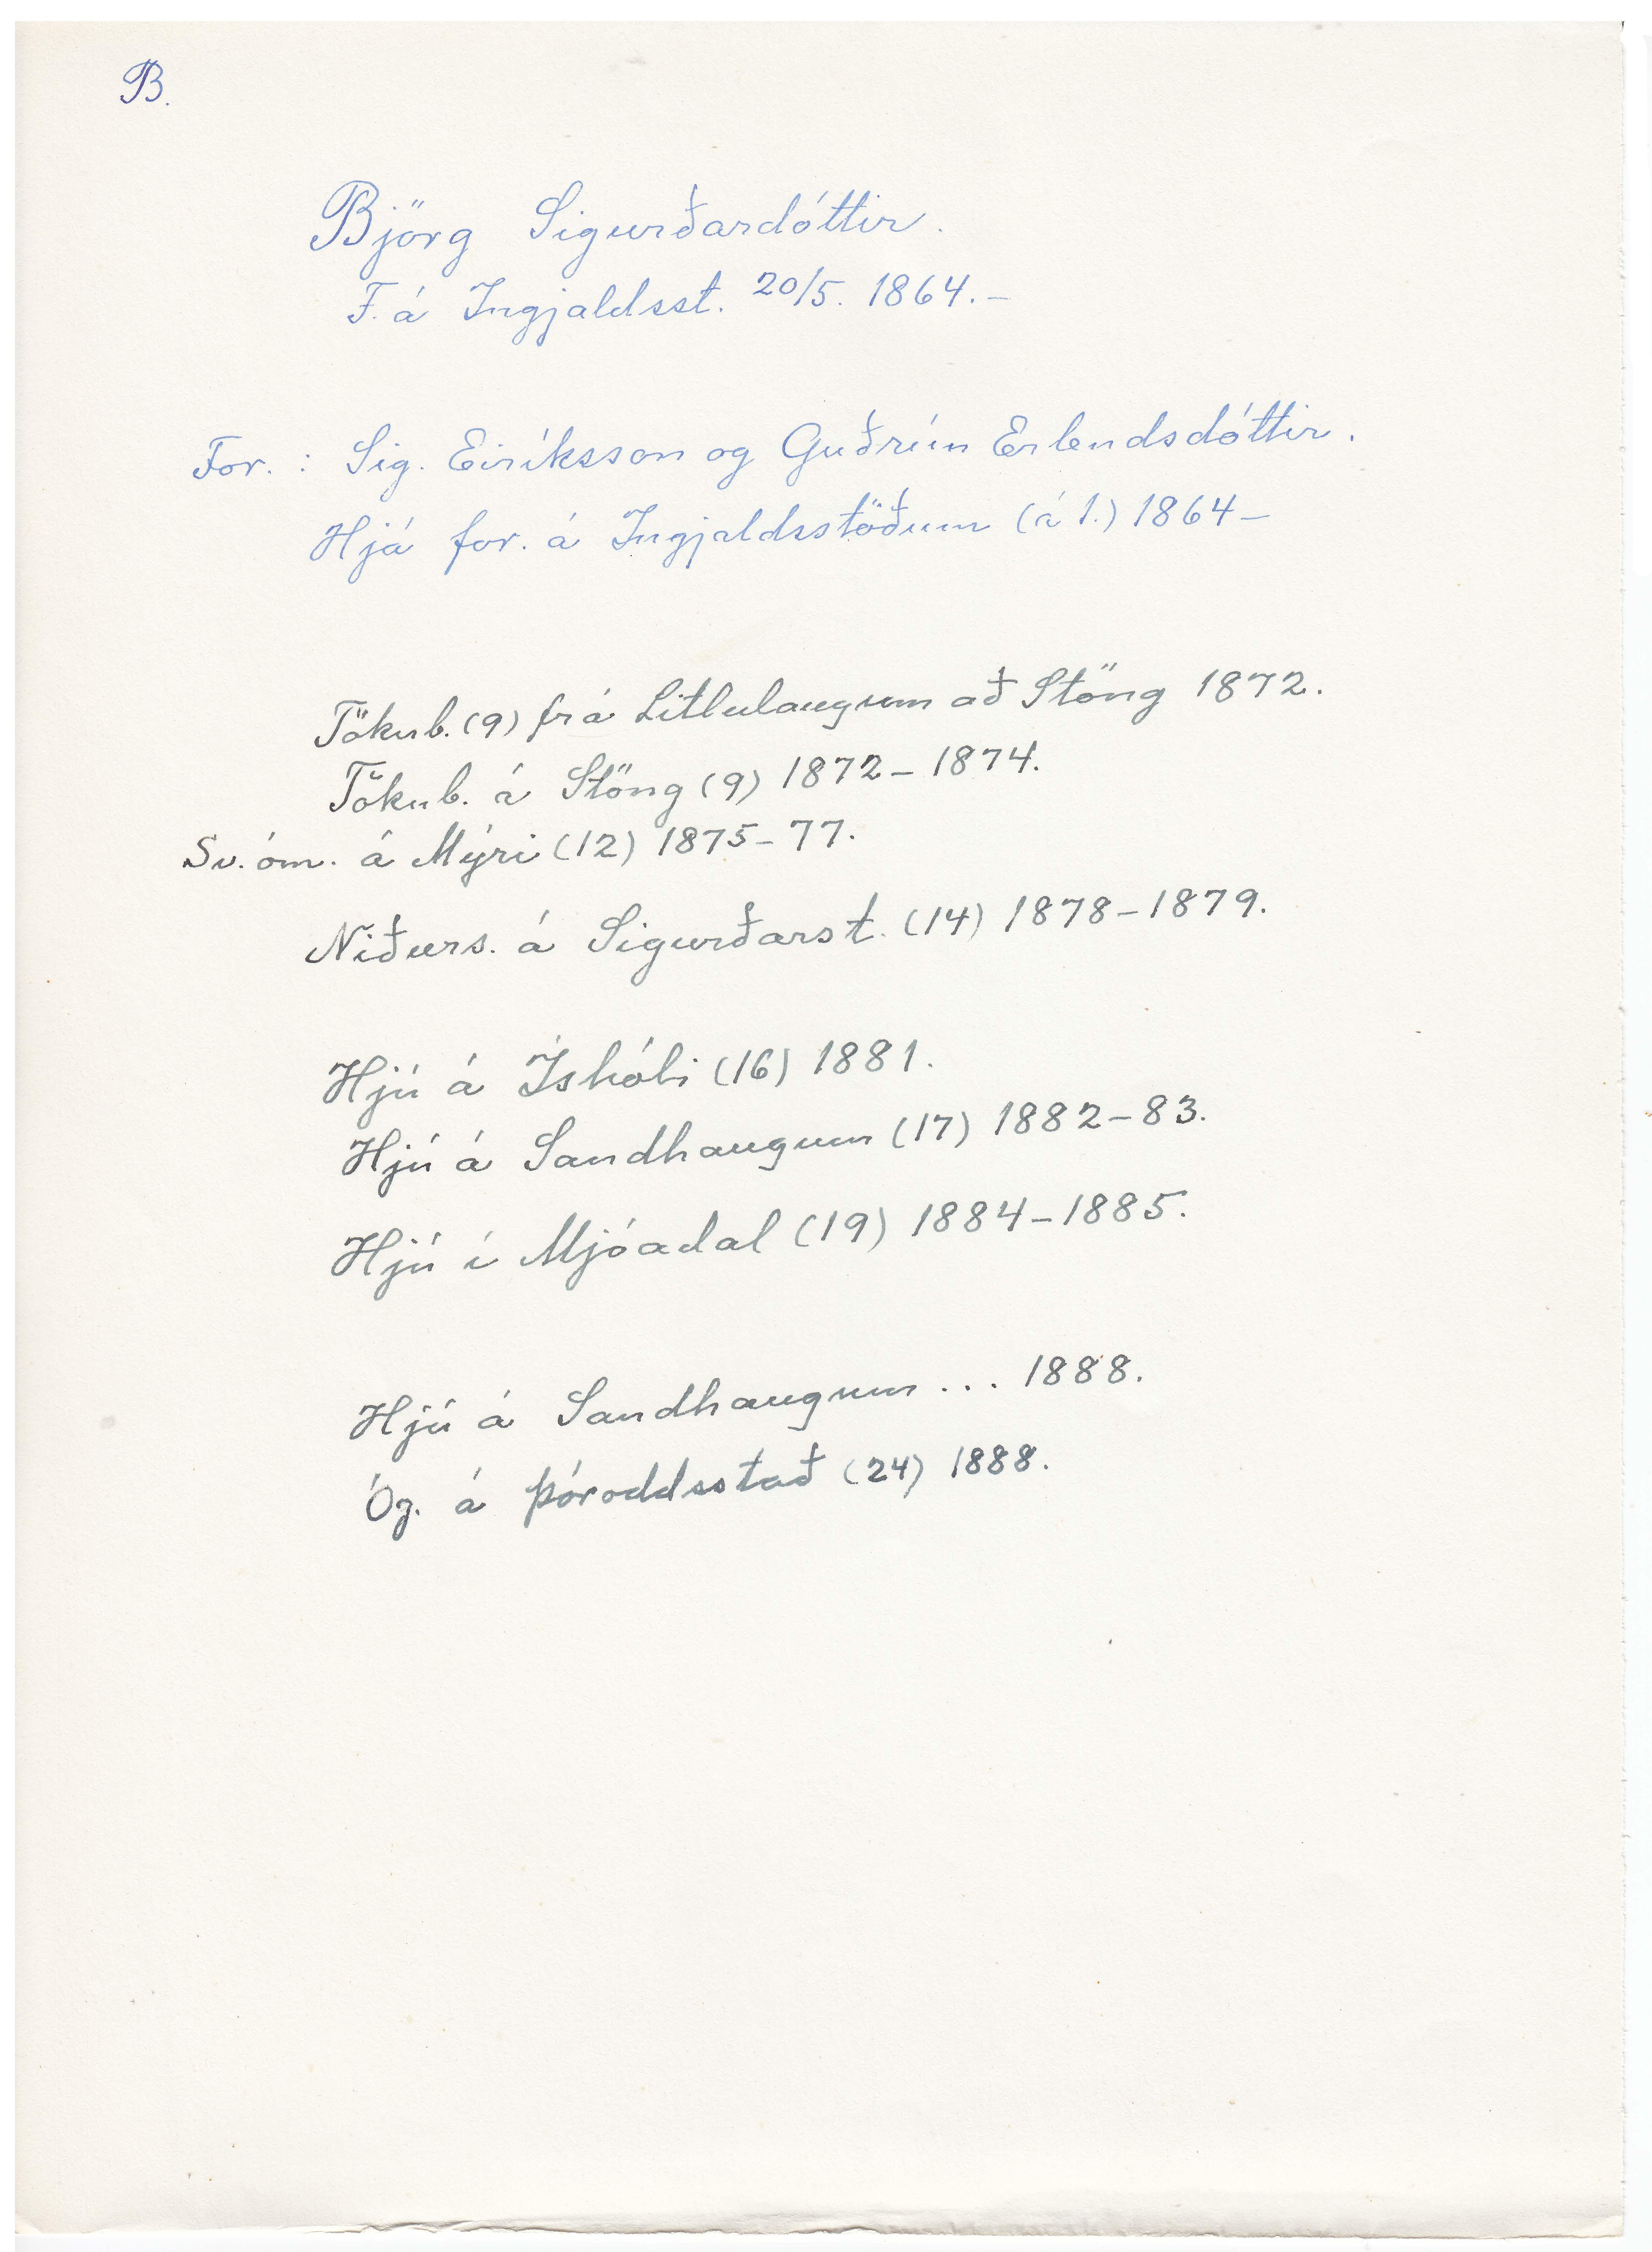 B.
Björg Sigurðardóttir.
F. á Ingjaldsst. 20/5. 1864.–
For. : Sig. Eiríksson og Guðrún Erlendsdóttir.
Hjá for. á Ingjaldsstöðum (á 1.) 1864–
Tökub. (9) frá Litlulaugum að Stöng 1872.
Tökub. á Stöng (9) 1872–1874.
Sv. óm. á Mýri (12) 1875–77.
Niðurs. á Sigurðarst. (14) 1878–1879.
Hjú á Íshóli (16) 1881.
Hjú á Sandhaugum (17) 1882–83.
Hjú í Mjóadal (19) 1884–1885.
Hjú á Sandhaugum ... 1888.
Óg. á Þóroddsstað (24) 1888.